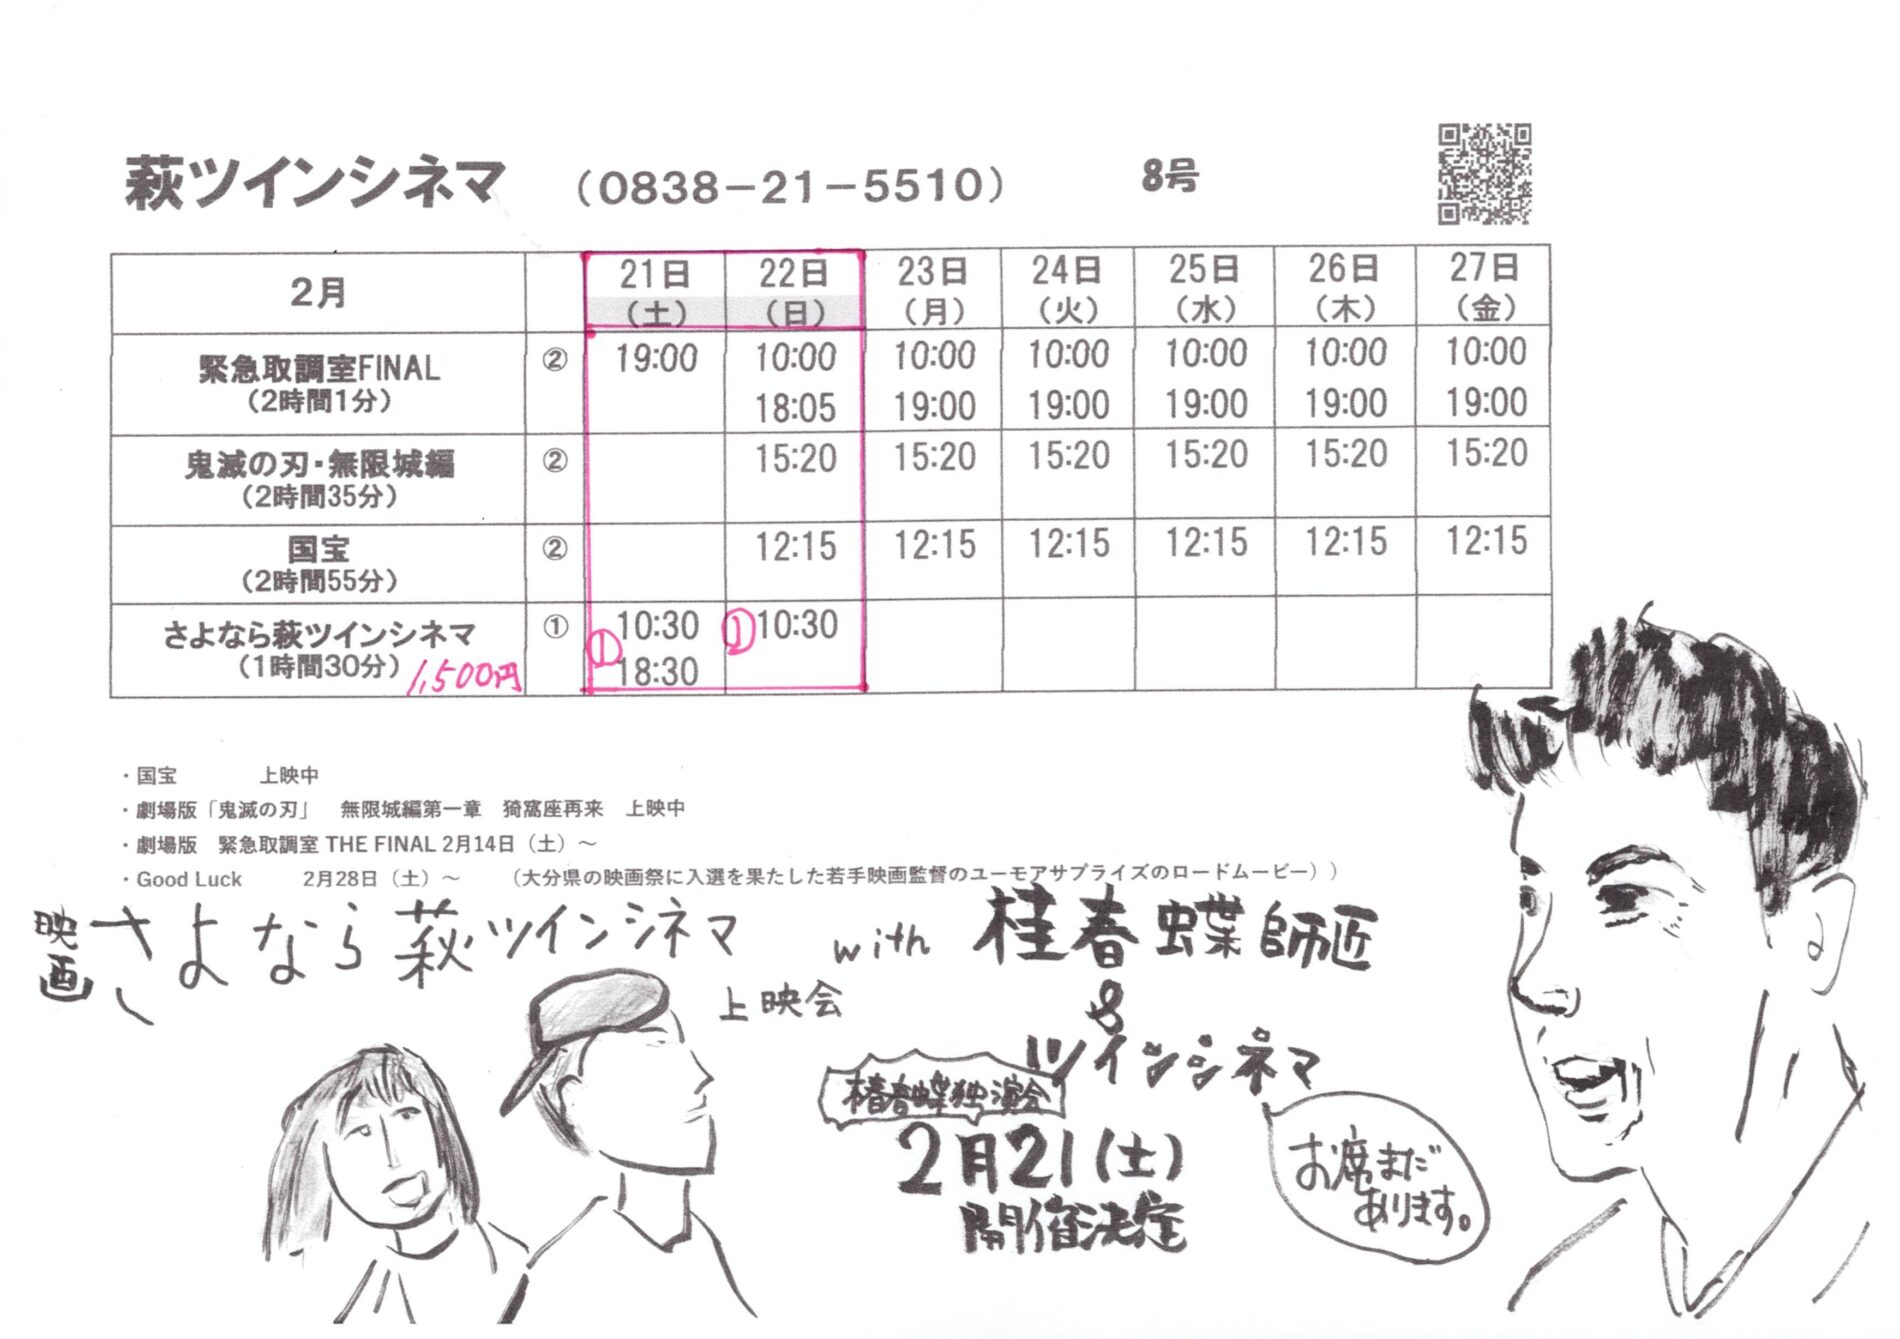 萩ツインシネマ （0838－21－5510） 8号
2月 21日 22日 23日 24日 25日 26日 27日
（土） （日） （月） （火） （水） （木） （金）
緊急取調室FINAL ② 19:00 10:00 10:00 10:00 10:00 10:00 10:00
（2時間1分） 18:05 19:00 19:00 19:00 19:00 19:00
鬼滅の刃・無限城編 ② 15:20 15:20 15:20 15:20 15:20 15:20
（2時間35分）
国宝 ② 12:15 12:15 12:15 12:15 12:15 12:15
（2時間55分）
さよなら萩ツインシネマ ① ① 10:30 ① 10:30
（1時間30分） 1,500円 18:30
・国宝 上映中
・劇場版「鬼滅の刃」 無限城編第一章 猗窩座再来 上映中
・劇場版 緊急取調室 THE FINAL 2月14日（土）～
・Good Luck 2月28日（土）～ （大分県の映画祭に入選を果たした若手映画監督のユーモアサプライズのロードムービー））
映画 さよなら萩ツインシネマ with 桂春蝶師匠
上映会 &
ツインシネマ
桂春蝶独演会
2月21(土)
開催決定
お席まだ
あります。